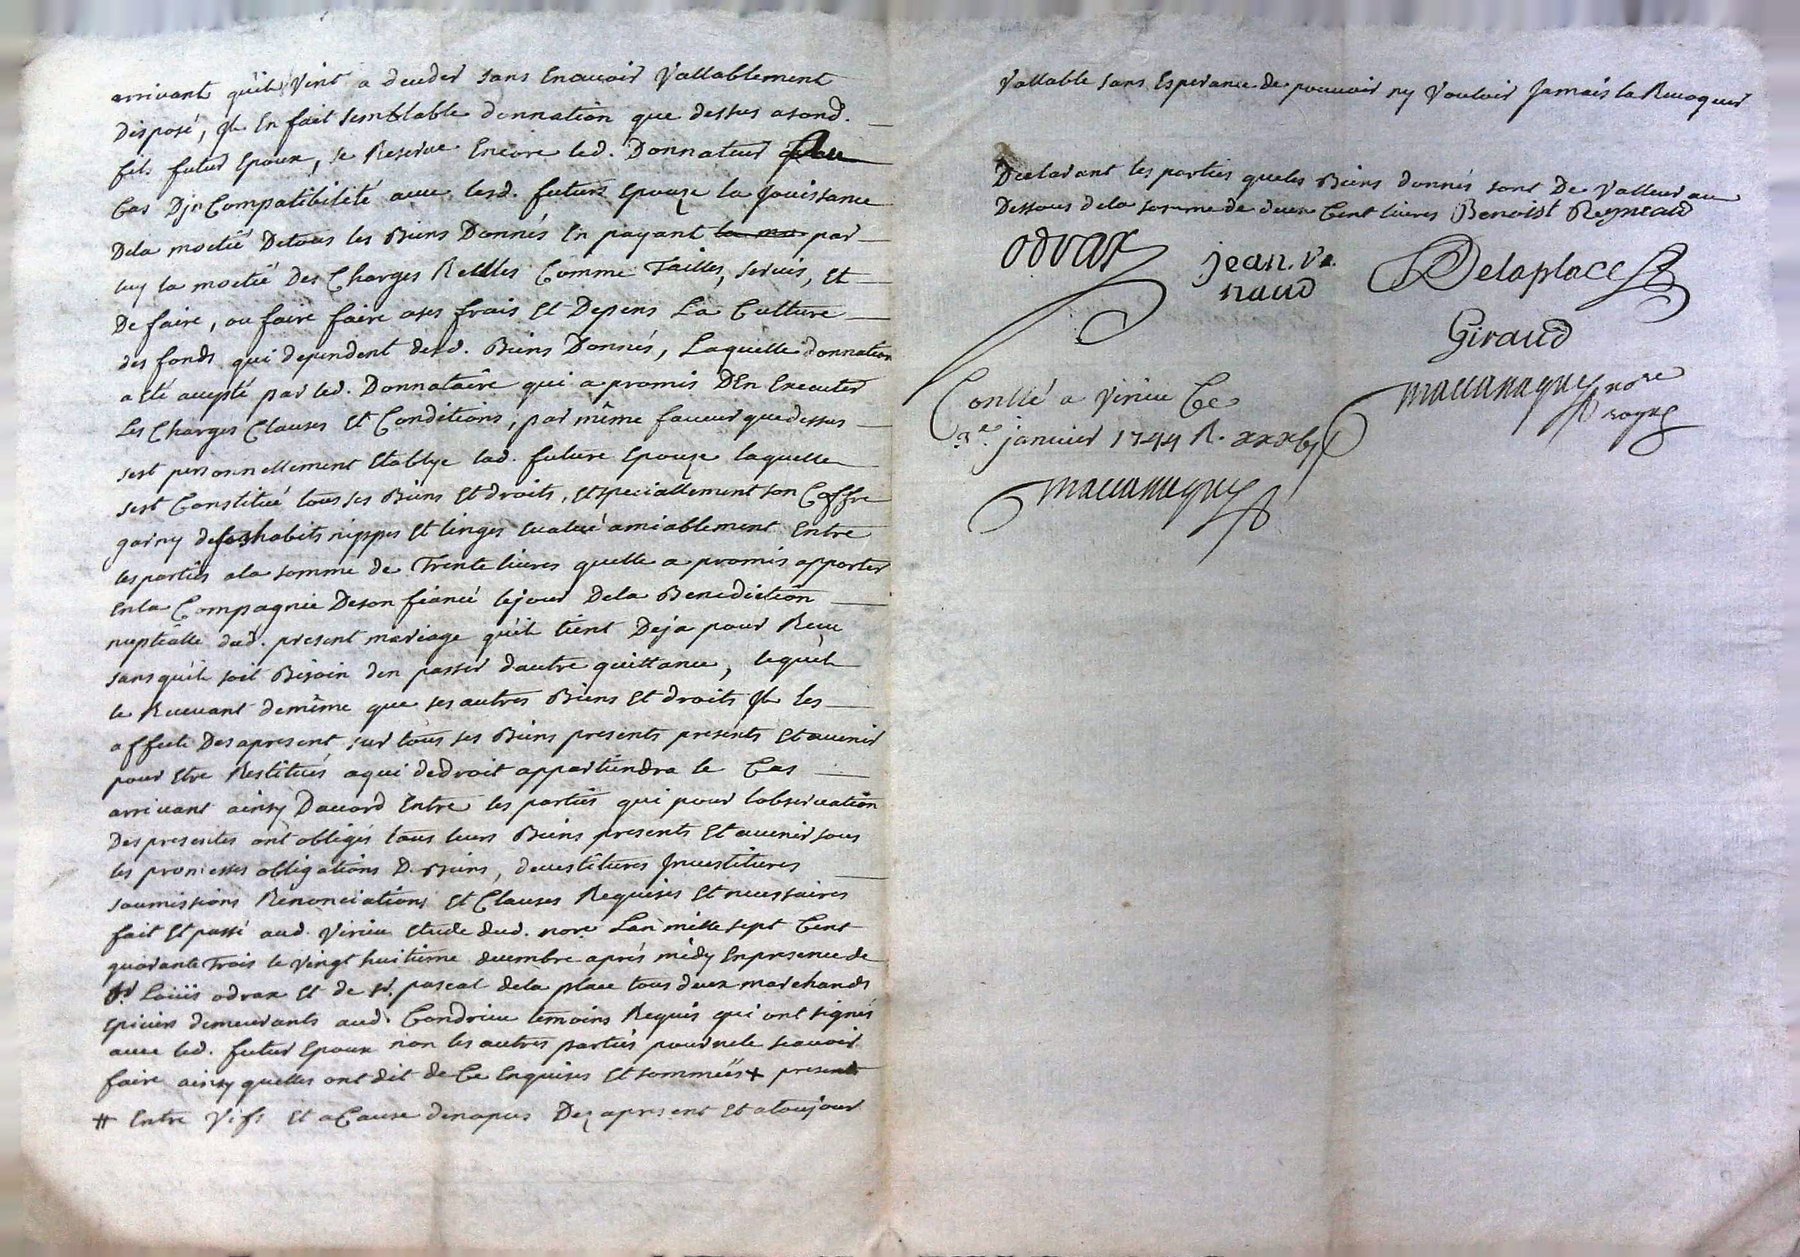 arrivant qu'il vint a deceder sans en avoir vallablement
disposé, Il en fait semblable donnation que dessus a sond.
fils futur epoux, se Reserve Encore led. Donnateur
Cas D'jnCompatibilité avec lesd. futurs epouze la jouissance
De la moetié De tous les Biens Donnés En payant la mo par
luy la moetié Des Charges Reelles Comme Tailles, servis, Et
De faire, ou faire faire a ses frais Et Depens La Culture
des fonds qui dependent desd. Biens Donnés, Laquelle donnation
a eté accepté par led. Donnataire qui a promis D'En Executer
Les Charges Clauses Et Conditions, par même faveur que dessus
sest personnellement Etablye lad. future Epouze laquelle
sest Constitué tous ses Biens Et droits, et speciallement son Coffre
garny de ses habits nippes Et linges evalué amiablement Entre
les parties a la somme de Trente livres quelle a promis apporter
En la Compagnie De son fiancé le jour De la Benediction
nuptialle dud. present mariage qu'il tient Deja pour Receu
sans qu'il soit Besoin d'en passer d'autre quittance, lequel
le Recevant de même que ses autres Biens Et droits Il les
affecte Des apresent sur tous ses Biens presents presents Et avenir
pour Etre Restitués a qui de droit appartiendra le Cas
arrivant ainsy D'accord Entre les parties qui pour l'observation
Des presentes ont obligés tous leurs Biens presents Et avenir sous
les promesses obligations D. Biens, devestitures Jnvestitures
soumissions Renonciations Et Clauses Requises Et necessaires
fait Et passé aud. Virieu etude dud. nore. L'an mille sept Cent
quarante trois le vingt huitieme decembre aprés midy En presence de
sr. Loüis odrax Et de sr. pascal de la place tous deux marchands
epiciers demeurants aud. Condrieu temoins Requis qui ont signés
avec led. futur Epoux non les autres parties pour ne le scavoir
faire ainsy quelles ont dit de Ce Enquises Et sommées + present
# Entre Vifs Et a Cause de nopces Dez apresent Et a toujour
Vallable sans Esperance de pouvoir ny Vouloir Jamais la Revoquer
Declarant les parties que les Biens donnés sont De Valleur au
Dessous de la somme de deux Cent livres Benoist Regneaud
odrax
jean. Re.
naud
Delaplace
Giraud
Contlé a Virieu Ce
3e. janvier 1744 R.